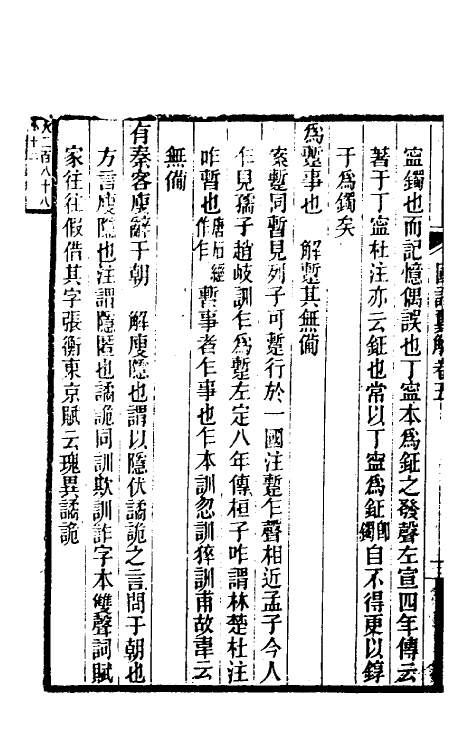 國語翼解卷五
甯鐲也而記憶偶誤也丁甯本爲鉦之發聲左宣四年傳云
著于丁甯杜注亦云鉦也常以丁甯爲鉦卽鐲自不得更以錞
于爲鐲矣
爲蹔事也　解蹔其無備
案蹔同暫見列子可蹔行於一國注蹔乍聲相近孟子今人
乍見孺子趙岐訓乍爲蹔左定八年傳桓子咋謂林楚杜注
咋暫也唐石經作乍暫事者乍事也乍本訓忽訓猝訓甫故韋云
無備
有秦客廋辭于朝　解廋隱也謂以隱伏譎詭之言問于朝也
方言廋隱也注謂隱匿也譎詭同訓欺訓詐字本雙聲詞賦
家往往假借其字張衡東京賦云瑰異譎詭